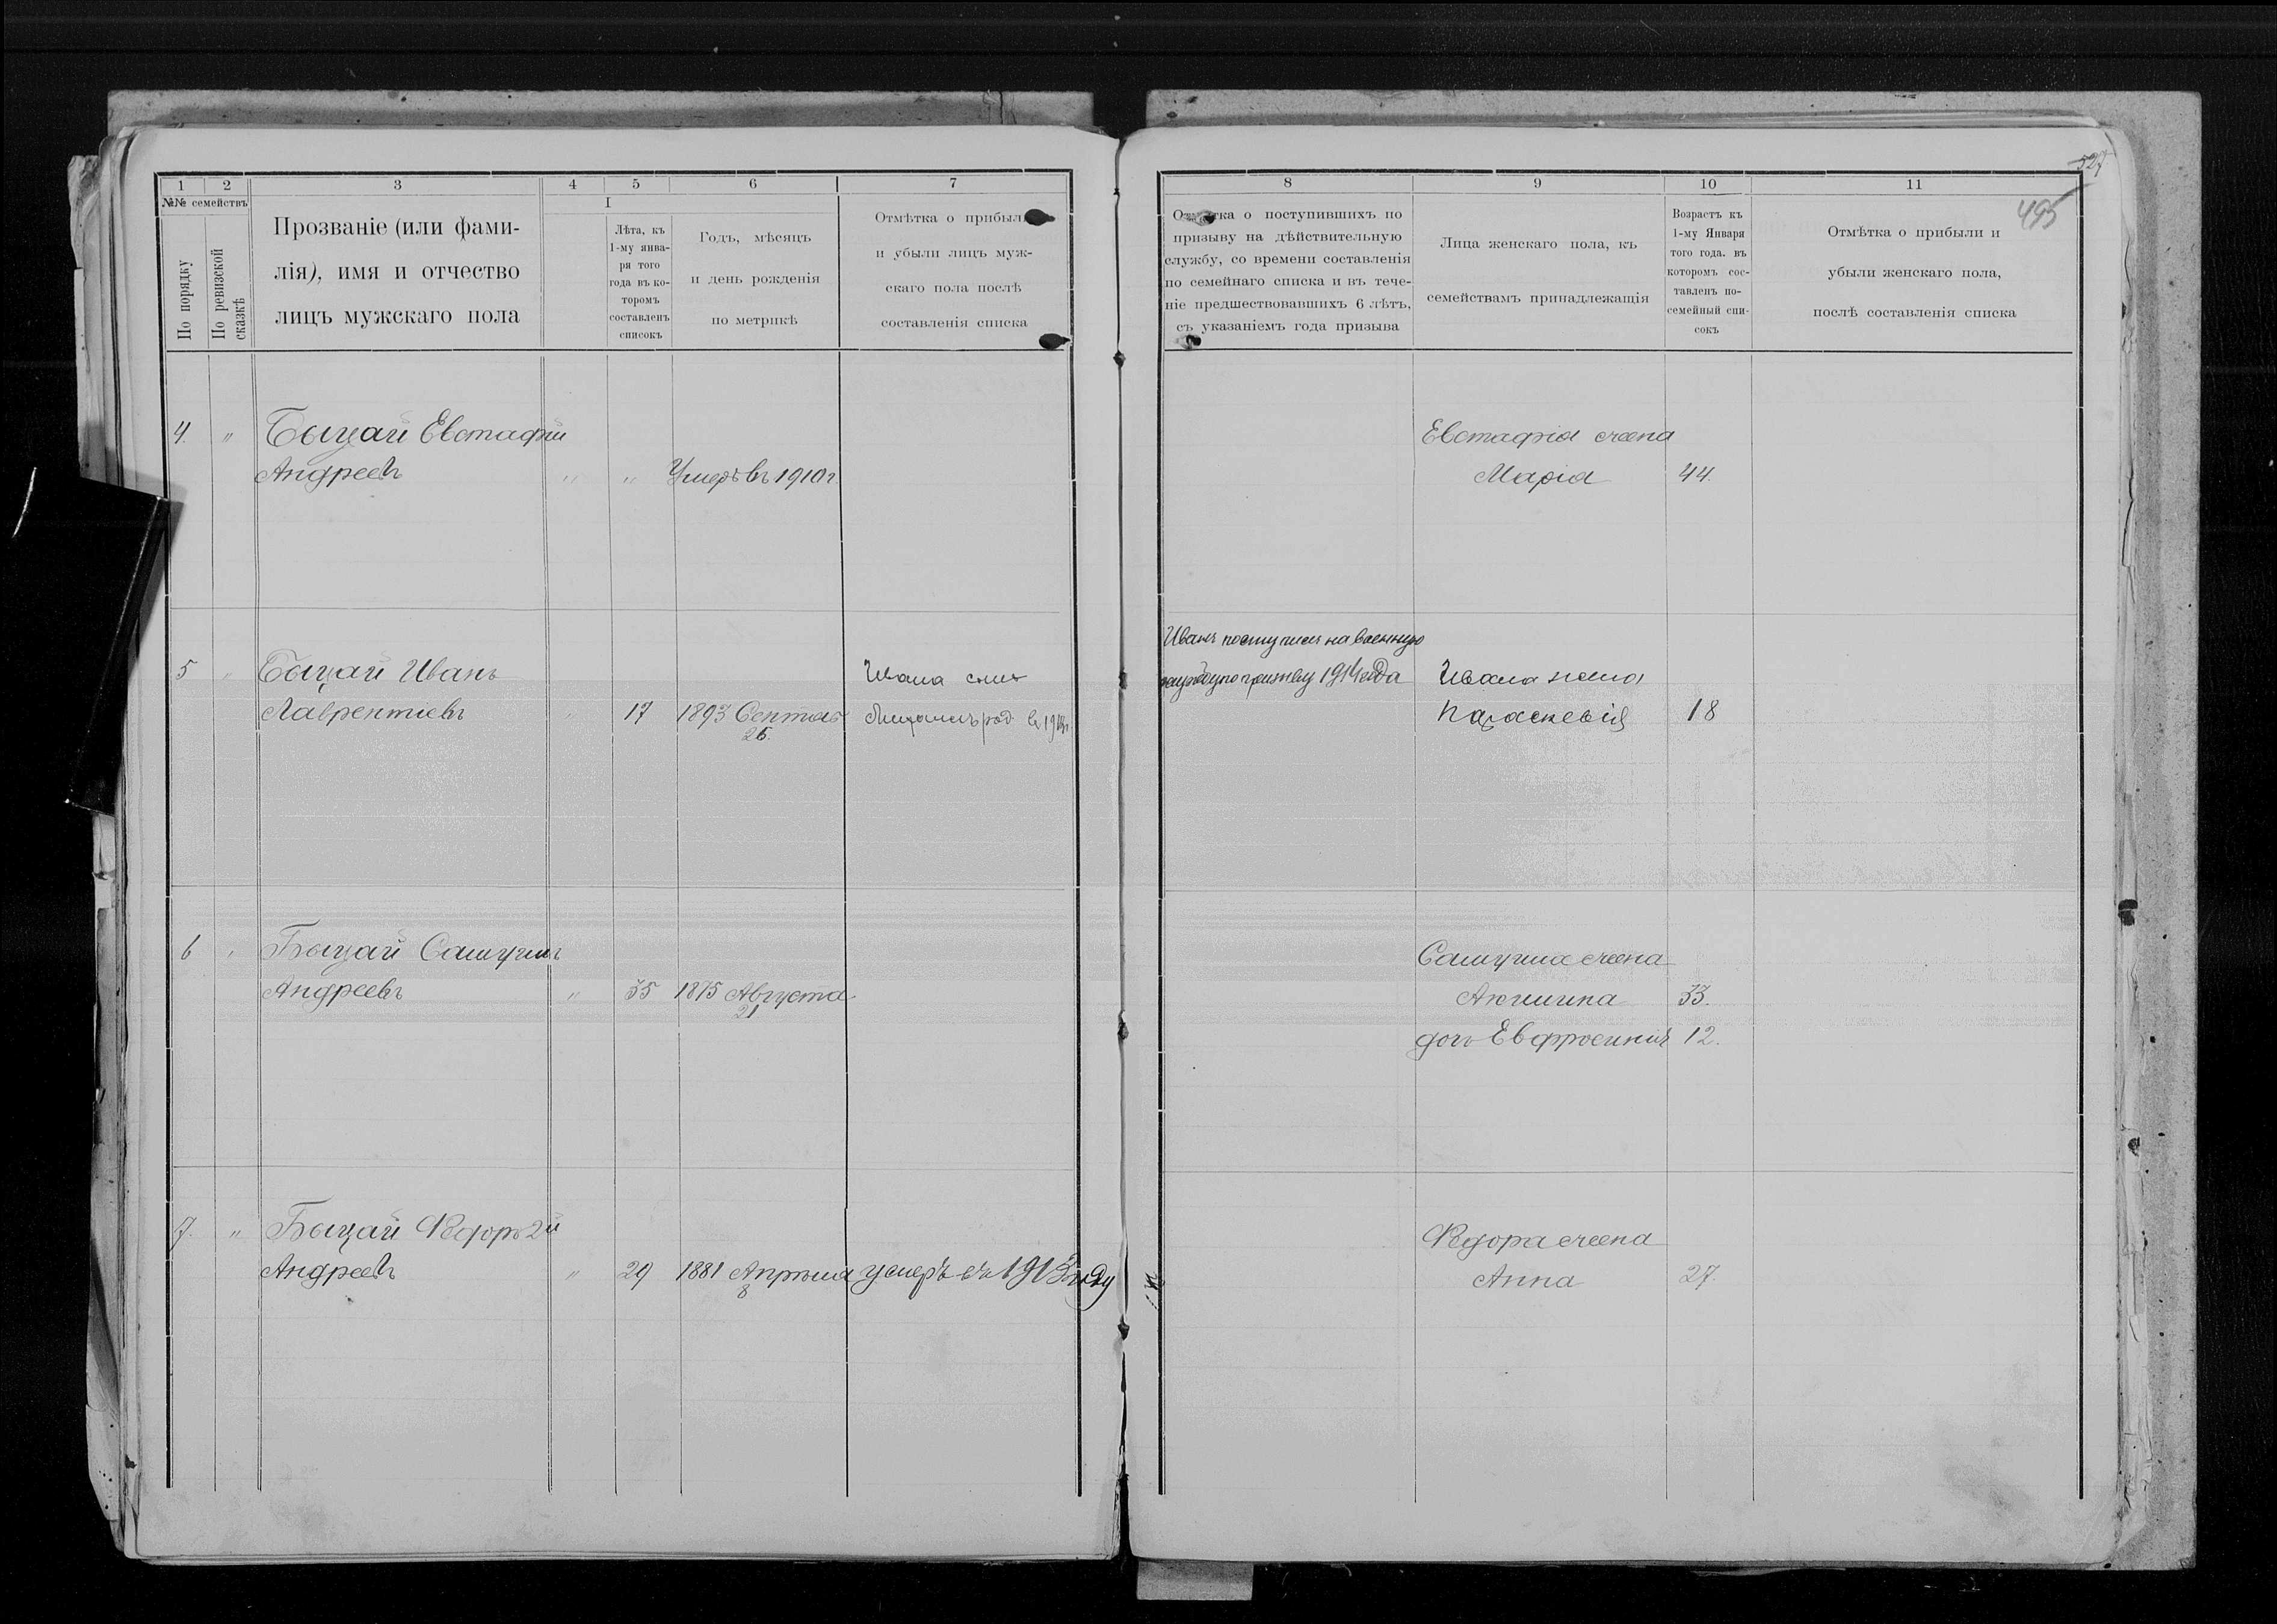 527
495
1 2 3 4 5 6 7
№№ семействъ
По порядку
По ревизской сказкѣ
Прозваніе (или фами-
лія), имя и отчество
лицъ мужскаго пола
I
Лѣта, къ
1-му янва-
ря того
года въ ко-
торомъ
составленъ
списокъ
Годъ, мѣсяцъ
и день рожденія
по метрикѣ
Отмѣтка о прибыли
и убыли лицъ муж-
скаго пола послѣ
составленія списка
4. " Быцай Евстафій
Андреевъ " " Умеръ въ 1910 г.
5 " Быцай Иванъ
Лаврентіевъ " 17 1893 Сентяб
26.
Ивана сынъ
род. въ
6 " Быцай Самуилъ
Андреевъ " 35 1875 Августа
21
7. " Быцай Ѳедоръ 2й
Андреевъ " 29 1881 Апрѣля умеръ въ 1913 году
8
8 9 10 11
Отмѣтка о поступившихъ по
призыву на дѣйствительную
службу, со времени составленія
по семейнаго списка и въ тече-
ніе предшествовавшихъ 6 лѣтъ,
съ указаніемъ года призыва
Лица женскаго пола, къ
семействамъ принадлежащія
Возрастъ къ
1-му Января
того года. въ
которомъ сос-
тавленъ по-
семейный спи-
сокъ
Отмѣтка о прибыли и
убыли женскаго пола,
послѣ составленія списка
Евстафія жена
Марія 44.
Иванъ поступилъ на военную
службу по призыву 1914 года
Ивана жена
Параскевія 18
Самуила жена
Акилина 33.
дочь Евфросинія 12.
Ѳедора жена
Анна 27.